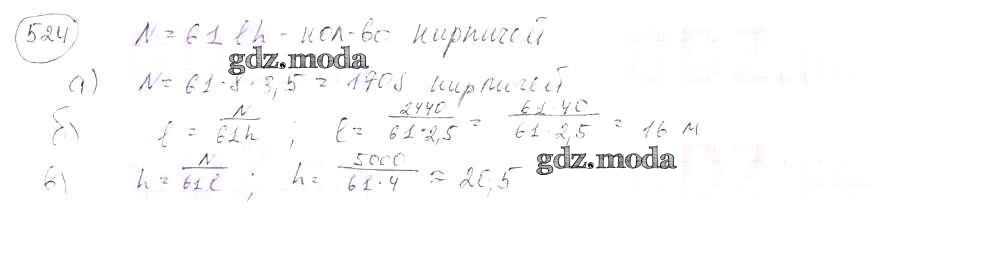 524 N = 61 ℓh - кол-во кирпичей
gdz.moda
а) N = 61·8·3,5 = 1708 кирпичей
б) ℓ = N/61h ; ℓ = 2440/61·2,5 = 61·40/61·2,5 = 16 м
gdz.moda
в) h = N/61ℓ ; h = 5000/61·4 ≈ 20,5